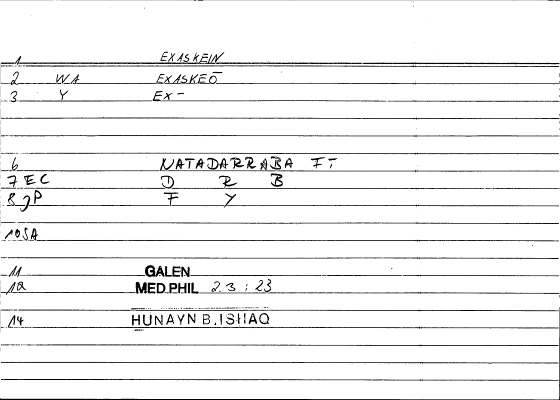 1 EXASKEIN
2 WA EXASKEŌ
3 Y EX-
6 NATADARRABA FĪ
7 EC D R B
8 JP F Y
10 SA
11 GALEN
12 MED.PHIL 2.3 : 23
14 HUNAYN B.ISHAQ